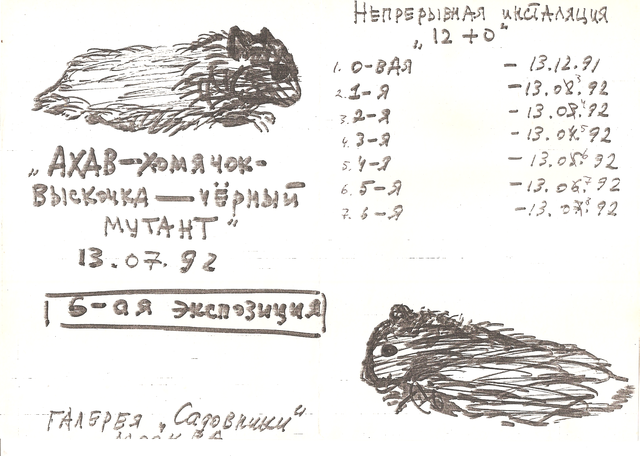 „АХАВ—хомячок-
выскочка — чёрный
мутант"
13.07.92
6-ая экспозиция
ГАЛЕРЕЯ „Садовники"
МОСКВА
НЕПРЕРЫВНАЯ инсталяция
„12+0"
1. 0-вая - 13.12.91
2. 1-я -13. .92
3. 2-я - 13. .92
4. 3-я - 13. .92
5. 4-я - 13. .92
6. 5-я - 13. .92
7. 6-я -13. .92